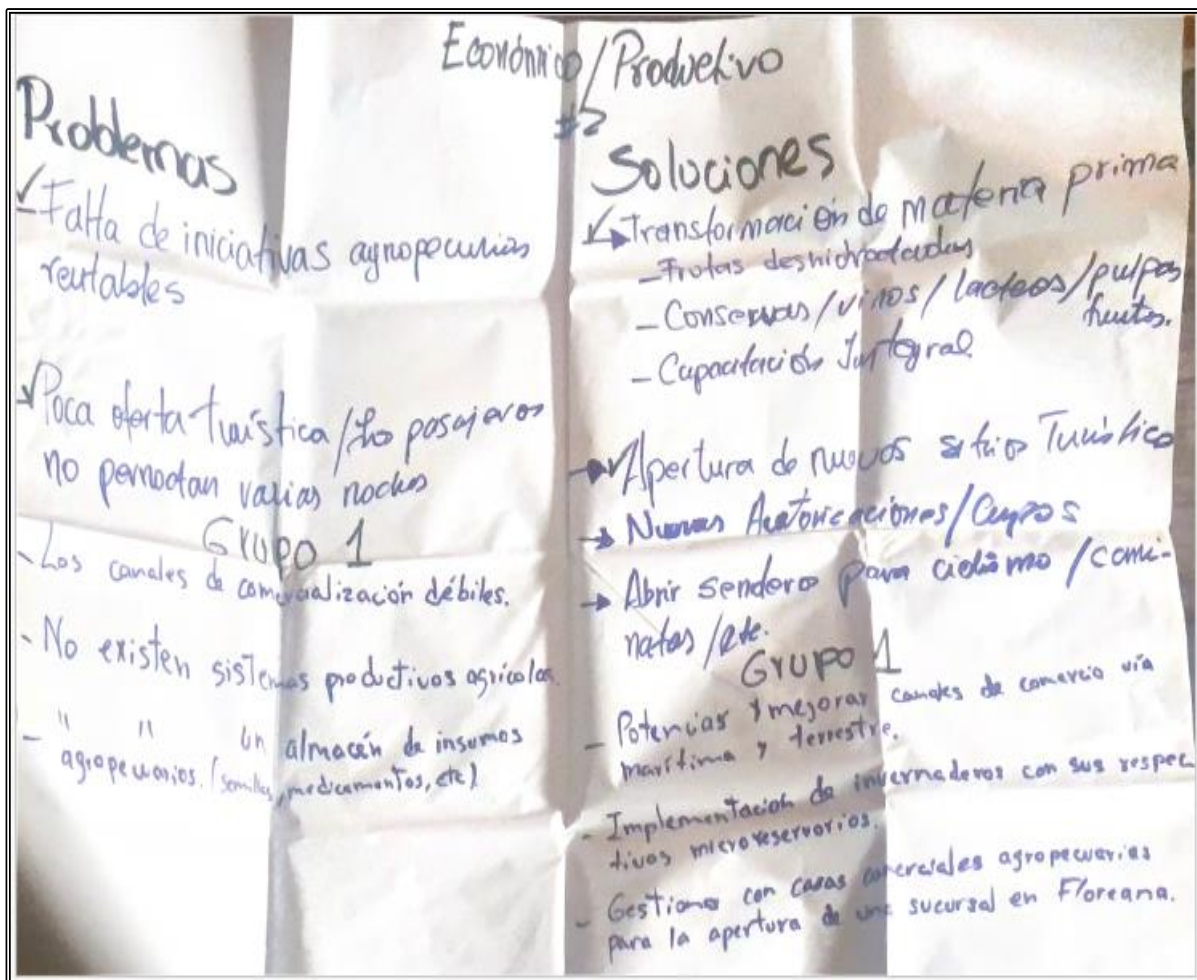 Económico/Productivo
#2
Problemas
✓-Falta de iniciativas agropecuarias
rentables
✓Poca oferta turística/Lo pasajeros
no pernoctan varias noches
Grupo 1
- Los canales de comercialización débiles.
- No existen sistemas productivos agrícolas.
- " " un almacén de insumos
agropecuarios. (semillas, medicamentos, etc)
Soluciones
Transformación de materia prima
- Frutas deshidratadas
- Conservas/vinos/lacteos/pulpas
frutas.
- Capacitación Integral
→ Apertura de nuevos sitio Turístico
→ Nuevas Autoricaciones/Cupos
→ Abrir sendero para ciclismo/cami-
natas/etc.
Grupo 1
- Potenciar y mejorar canales de comercio vía
marítima y terrestre.
- Implementación de invernaderos con sus respec
tivos microreservorios.
- Gestionar con casas comerciales agropecuarias
para la apertura de una sucursal en Floreana.